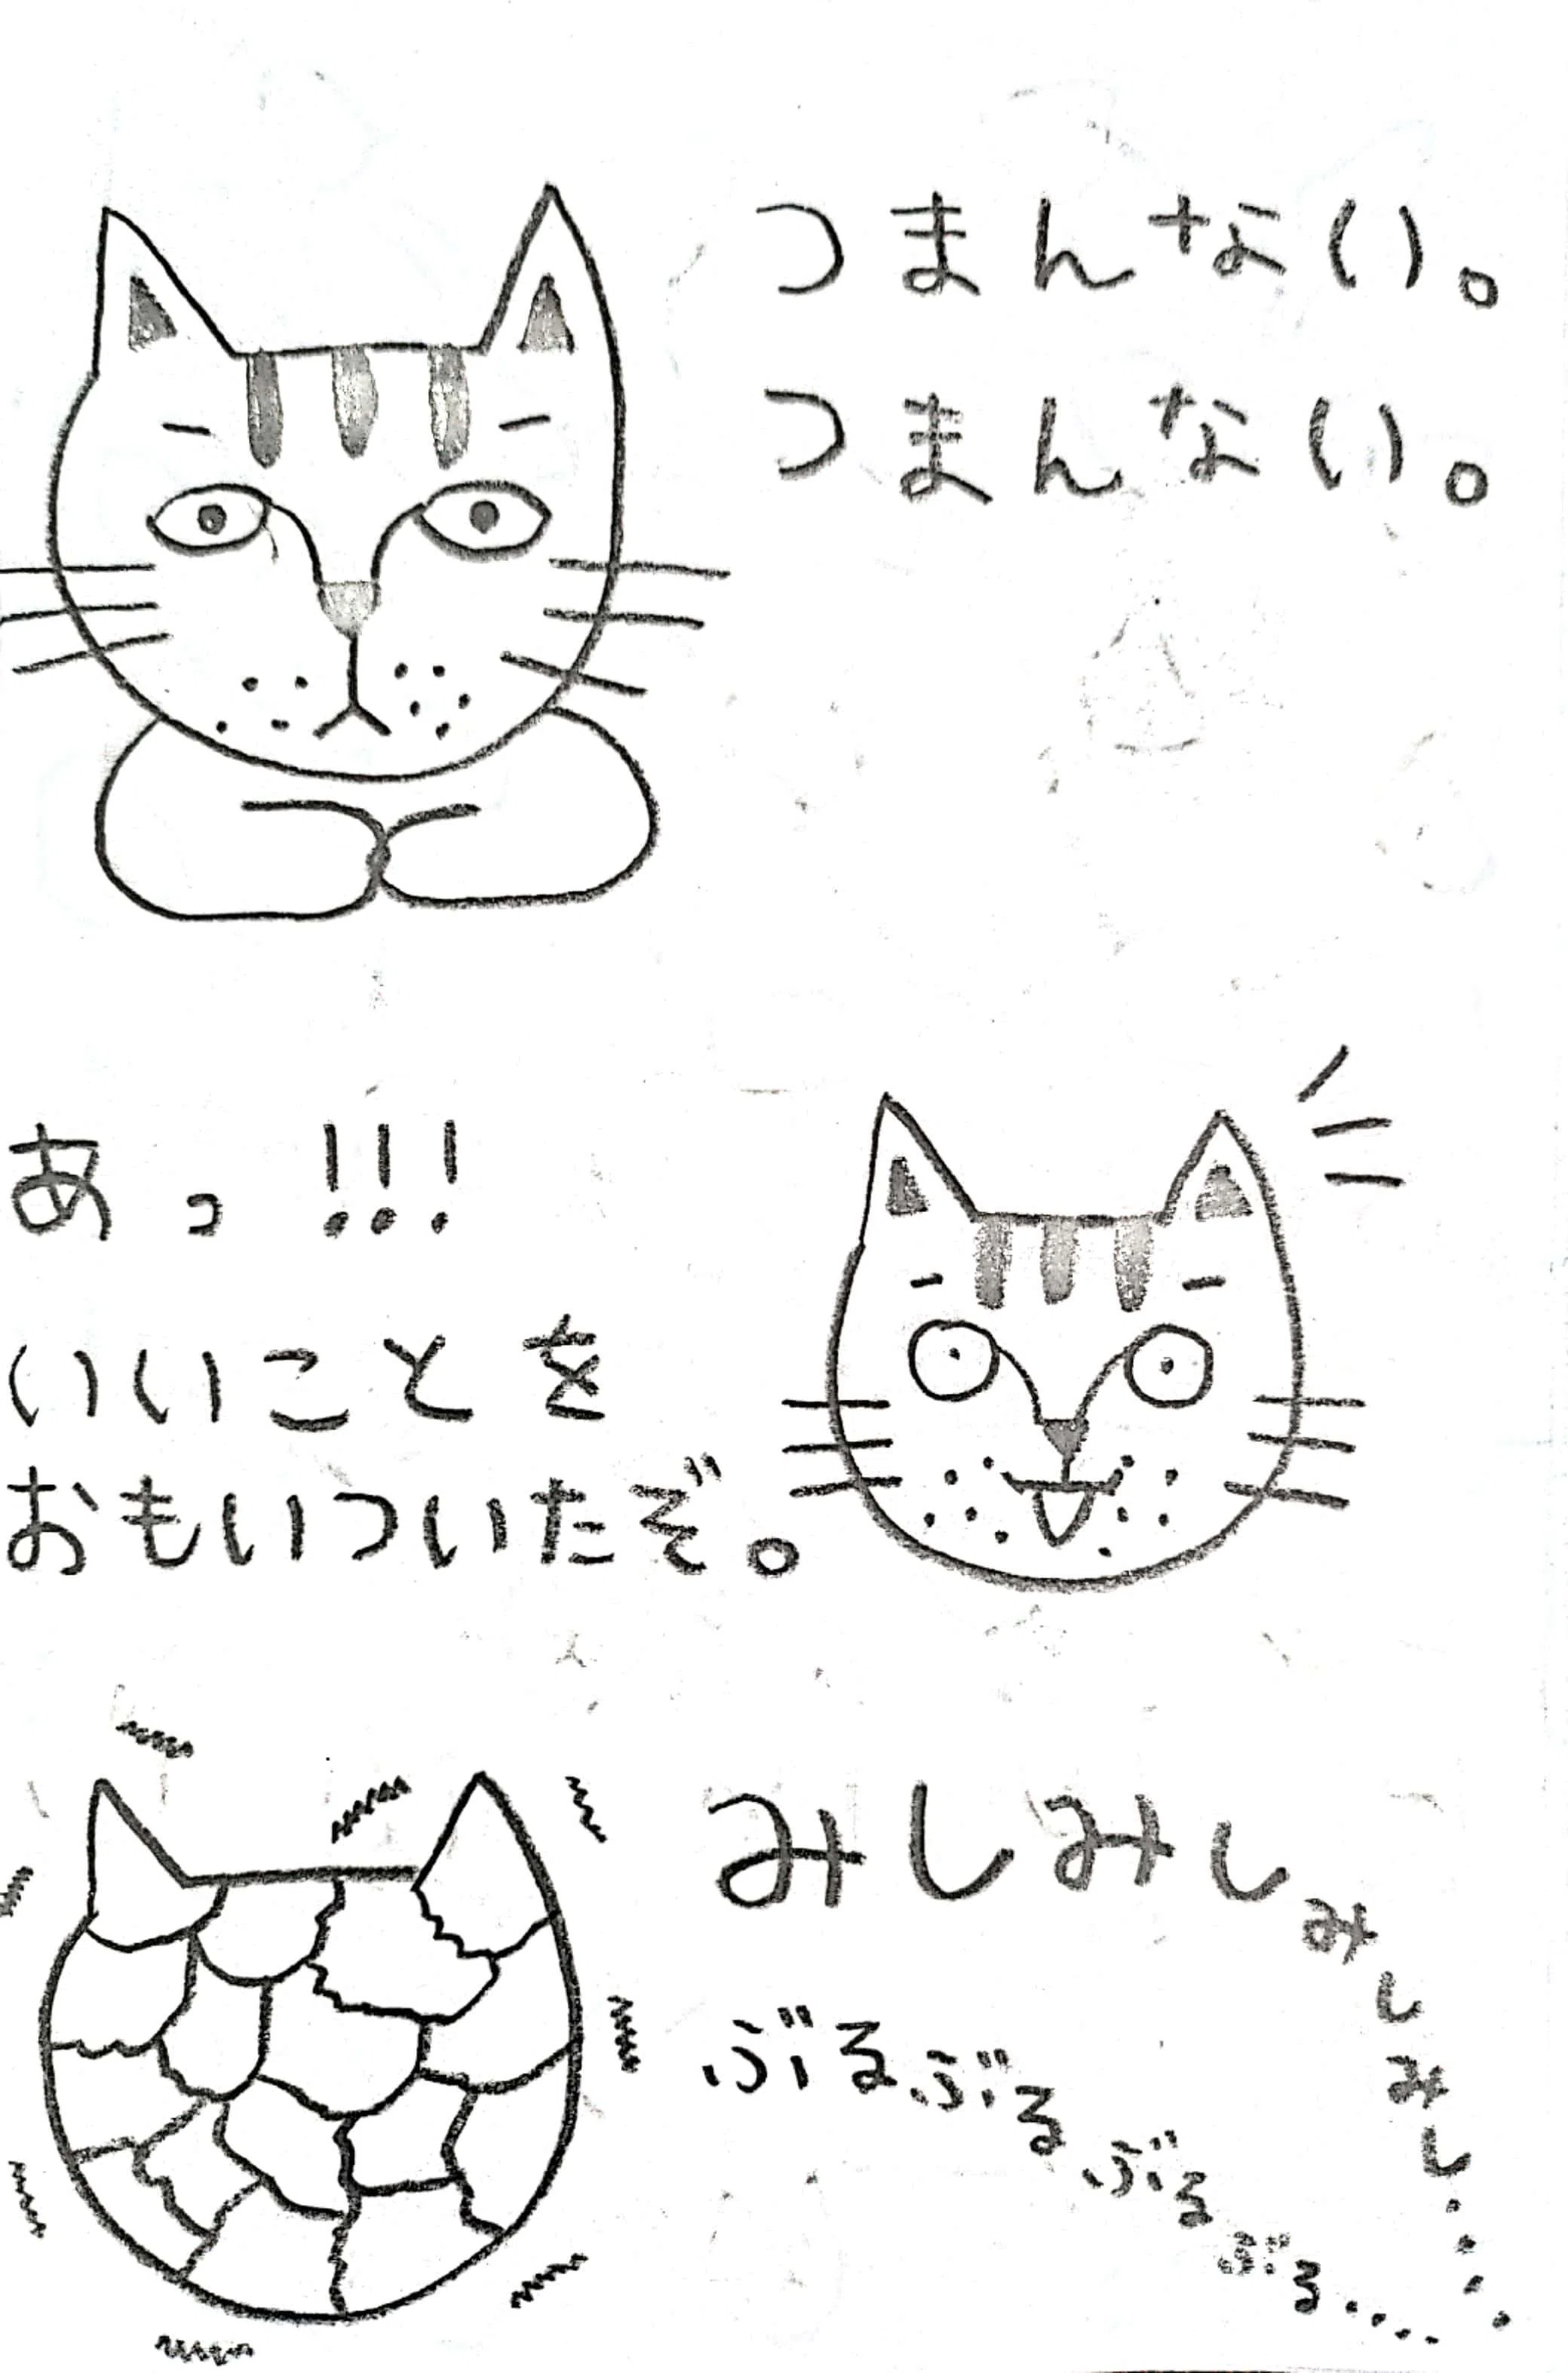 つまんない。
つまんない。
あっ!!!
いいことを
おもいついたぞ。
みしみしみしみし・・・・
ぶるぶるぶるぶる・・・・・